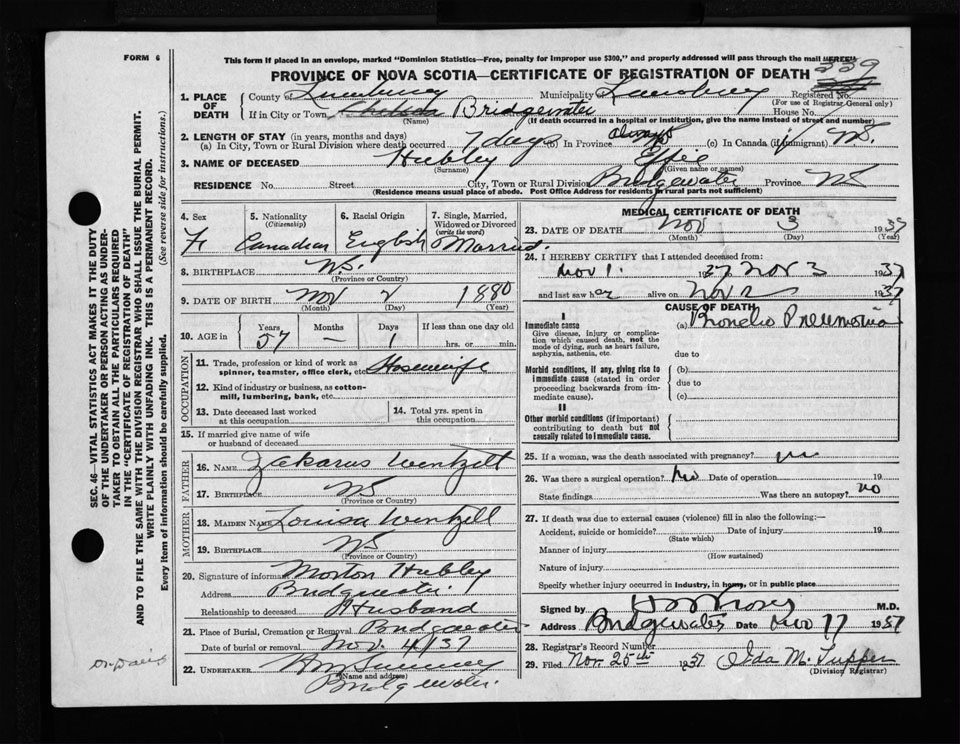 FORM 6
This form if placed in an envelope, marked "Dominion Statistics—Free, penalty for improper use $300," and properly addressed will pass through the mail "FREE"
PROVINCE OF NOVA SCOTIA—CERTIFICATE OF REGISTRATION OF DEATH
339
1. PLACE OF DEATH
County of Lunenburg Municipality of Lunenburg Registered No.
(For use of Registrar General only)
If in City or Town Bridgewater House No.
(Name) (If death occurred in a hospital or institution, give the name instead of street and number)
2. LENGTH OF STAY (in years, months and days)
(a) In City, Town or Rural Division where death occurred 7 days (b) In Province always (c) In Canada (if immigrant) N.S.
3. NAME OF DECEASED Hubley Effie
(Surname) (Given name or names)
RESIDENCE No. Street City, Town or Rural Division Bridgewater Province N S
(Residence means usual place of abode. Post Office Address for residents in rural parts not sufficient)
4. Sex F
5. Nationality (Citizenship) Canadian
6. Racial Origin English
7. Single, Married, Widowed or Divorced (write the word) Married.
8. BIRTHPLACE N.S.
(Province or Country)
9. DATE OF BIRTH Nov 2 1880
(Month) (Day) (Year)
10. AGE in Years 57 Months — Days 1 If less than one day old hrs. or min.
OCCUPATION
11. Trade, profession or kind of work as spinner, teamster, office clerk, etc. Hosewife
12. Kind of industry or business, as cotton-mill, lumbering, bank, etc.
13. Date deceased last worked at this occupation
14. Total yrs. spent in this occupation
15. If married give name of wife or husband of deceased
FATHER
16. NAME Zakarus Wentzell
17. BIRTHPLACE N S
(Province or Country)
MOTHER
18. MAIDEN NAME Louisa Wentzell
19. BIRTHPLACE N S
(Province or Country)
20. Signature of informant Morton Hubley
Address Bridgewater
Relationship to deceased Husband
21. Place of Burial, Cremation or Removal Bridgewater
Date of burial or removal Nov. 4/37
22. UNDERTAKER
(Name and address)
Bridgewater
MEDICAL CERTIFICATE OF DEATH
23. DATE OF DEATH Nov 3 1937
(Month) (Day) (Year)
24. I HEREBY CERTIFY that I attended deceased from:
Nov 1. 1937 Nov 3 1937
and last saw her alive on Nov 2 1937
CAUSE OF DEATH
I
Immediate cause
Give disease, injury or complication which caused death, not the mode of dying, such as heart failure, asphyxia, asthenia, etc.
(a) Broncho Pneumonia
due to
Morbid conditions, if any, giving rise to immediate cause (stated in order proceeding backwards from immediate cause).
(b)
due to
(c)
II
Other morbid conditions (if important) contributing to death but not causally related to immediate cause.
25. If a woman, was the death associated with pregnancy? no
26. Was there a surgical operation? No Date of operation 19
State findings Was there an autopsy? no
27. If death was due to external causes (violence) fill in also the following:—
Accident, suicide or homicide? Date of injury 19
(State which)
Manner of injury
(How sustained)
Nature of injury
Specify whether injury occurred in industry, in home, or in public place
Signed by M.D.
Address Bridgewater Date Nov 1937
28. Registrar's Record Number
29. Filed Nov. 25th 1937 Ida M. Tupper
(Division Registrar)
SEC. 46—VITAL STATISTICS ACT MAKES IT THE DUTY
OF THE UNDERTAKER OR PERSON ACTING AS UNDER-
TAKER TO OBTAIN ALL THE PARTICULARS REQUIRED
IN THE "CERTIFICATE OF REGISTRATION OF DEATH"
AND TO FILE THE SAME WITH THE DIVISION REGISTRAR WHO SHALL ISSUE THE BURIAL PERMIT.
WRITE PLAINLY WITH UNFADING INK. THIS IS A PERMANENT RECORD.
Every item of information should be carefully supplied. (See reverse side for instructions.)
Dr. Davis